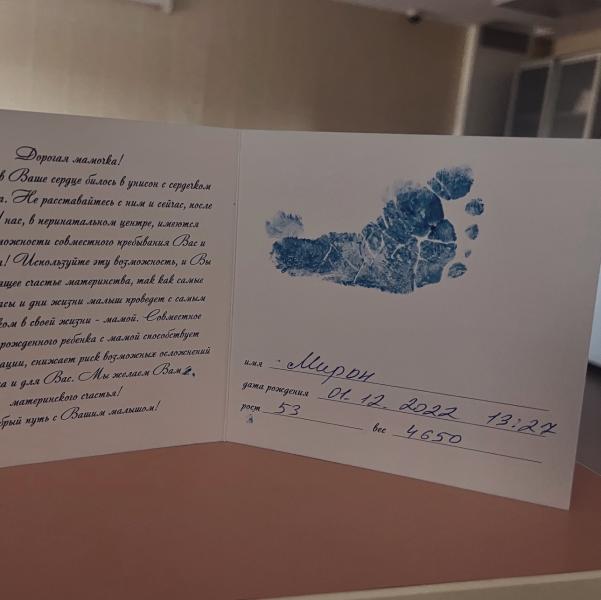 Дорогая мамочка!
в Ваше сердце билось в унисон с сердечком
Не расставайтесь с ним и сейчас, после
нас, в перинатальном центре, имеются
совместного пребывания Вас и
Используйте эту возможность, и Вы
счастье материнства, так как самые
и дни жизни малыш проведет с самым
в своей жизни – мамой. Совместное
рожденного ребенка с мамой способствует
снижает риск возможных осложнений
и для Вас. Мы желаем Вам
материнского счастья!
путь с Вашим малышом!
имя Мирон
дата рождения 01.12.2022 13:27
рост 53 вес 4650